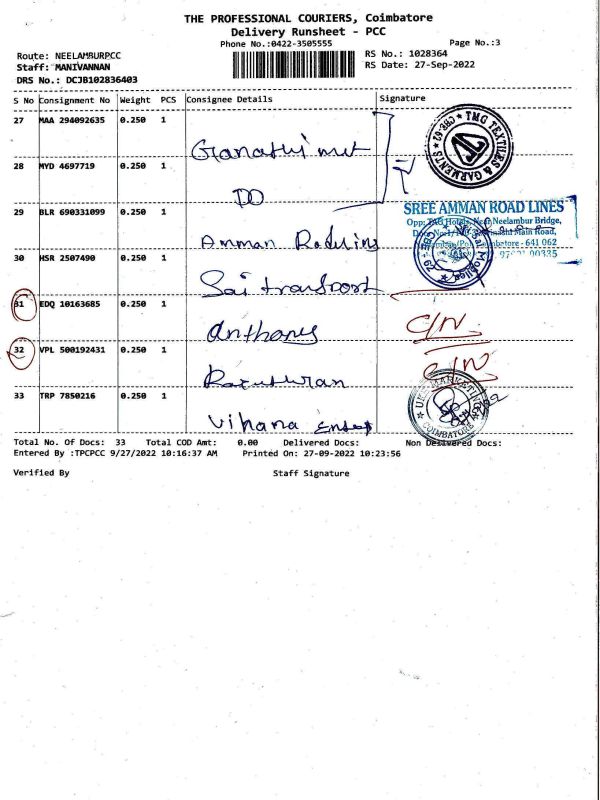 THE PROFESSIONAL COURIERS, Coimbatore
Delivery Runsheet - PCC
Phone No.:0422-3505555
Page No.:3
Route: NEELAMBURPCC
RS No.: 1028364
Staff: MANIVANNAN
RS Date: 27-Sep-2022
DRS No.: DCJB102836403
S No Consignment No Weight PCS Consignee Details Signature
27 MAA 294092635 0.250 1
TMG TEXTILES & GARMENTS
28 MYD 4697719 0.250 1
DO
29 BLR 690331099 0.250 1
SREE AMMAN ROAD LINES
Neelambur Bridge,
Main Road,
641 062
Amman
30 HSR 2507490 0.250 1
Sai transport
31 EDQ 10163685 0.250 1
C/N.
Anthony
32 VPL 500192431 0.250 1
C/N
33 TRP 7850216 0.250 1
COIMBATORE
Vihana
Total No. Of Docs: 33 Total COD Amt: 0.00 Delivered Docs: Non Delivered Docs:
Entered By :TPCPCC 9/27/2022 10:16:37 AM Printed On: 27-09-2022 10:23:56
Verified By Staff Signature